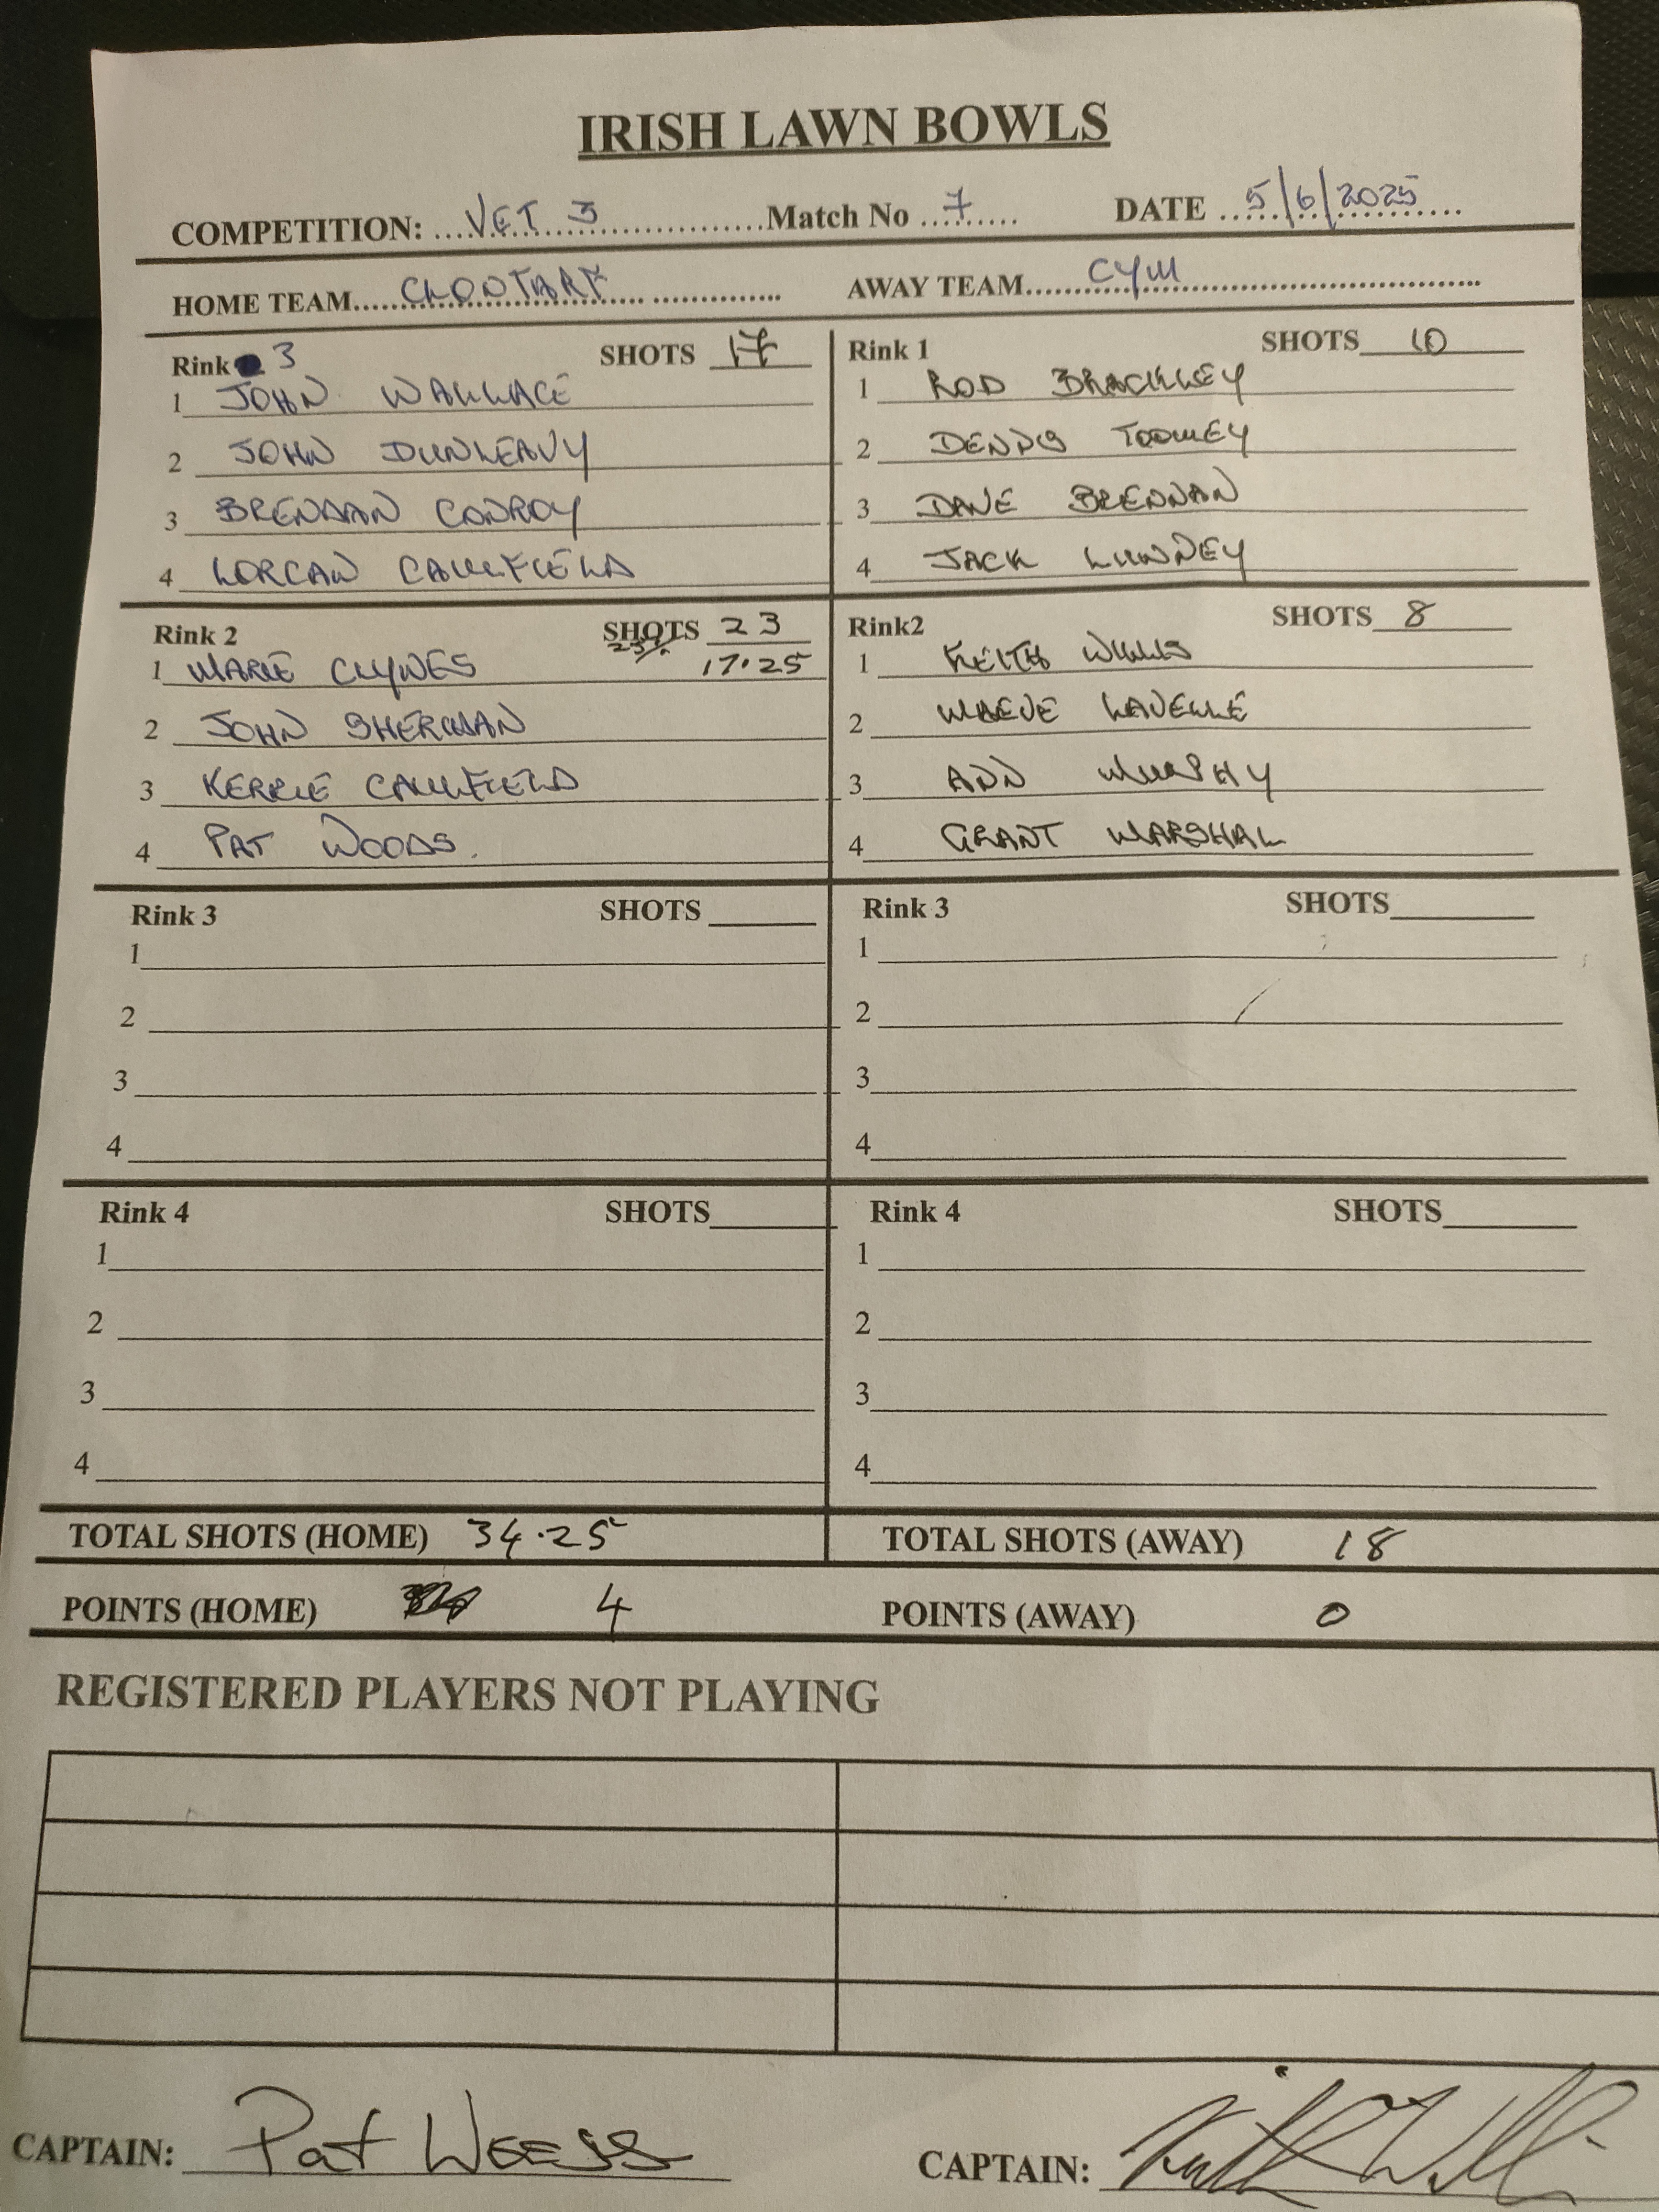 IRISH LAWN BOWLS
COMPETITION: VET 3 Match No 7 DATE 5/6/2025
HOME TEAM CLONTARF AWAY TEAM CYM
Rink 3 SHOTS 17
1 JOHN WALLACE
2 JOHN DUNLEAVY
3 BRENDAN CONROY
4 LORCAN CAULFIELD
Rink 1 SHOTS 10
1 ROD BRACKLEY
2 DENNIS TOOMEY
3 DAVE BRENNAN
4 JACK LUNNEY
Rink 2 SHOTS 23
25% 17.25
1 MARIE CLYNES
2 JOHN SHERMAN
3 KERRIE CAULFIELD
4 PAT WOODS.
Rink2 SHOTS 8
1 KEITH WILLIS
2 MAEVE LAVELLE
3 ANN MURPHY
4 GRANT MARSHAL
Rink 3 SHOTS
1
2
3
4
Rink 3 SHOTS
1
2
3
4
Rink 4 SHOTS
1
2
3
4
Rink 4 SHOTS
1
2
3
4
TOTAL SHOTS (HOME) 34.25 TOTAL SHOTS (AWAY) 18
POINTS (HOME) 4 POINTS (AWAY) 0
REGISTERED PLAYERS NOT PLAYING
CAPTAIN: Pat CAPTAIN: